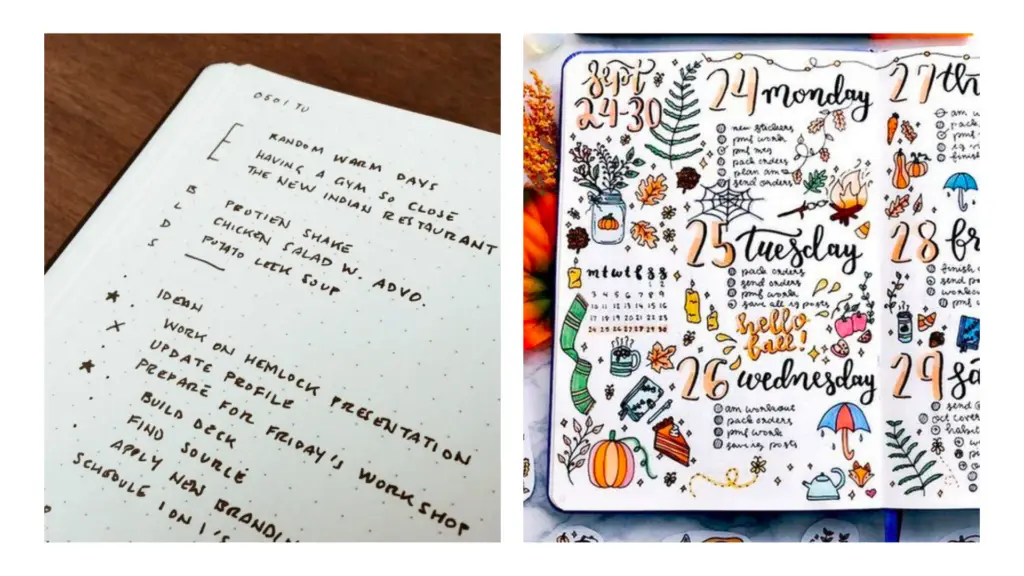 0501 TU
RANDOM WARM DAYS
HAVING A GYM SO CLOSE
THE NEW INDIAN RESTAURANT
B PROTIEN SHAKE
L CHICKEN SALAD W. ADVO.
D POTATO LEEK SOUP
S
WORK ON HEMLOCK PRESENTATION
UPDATE PROFILE
PREPARE FOR FRIDAY'S WORKSHOP
BUILD DECK
FIND SOURCE
APPLY NEW BRANDIN
SCHEDULE 1 ON 1'S
Sept
24-30
m t w t f s s
1 2
3 4 5 6 7 8 9
10 11 12 13 14 15 16
17 18 19 20 21 22 23
24 25 26 27 28 29 30
24 monday
new stickers
pmf work
pmf mtg
pack orders
plan am
send orders
25 tuesday
pack orders
send orders
pmf work
save all ig posts
hello
fall!
26 wednesday
am workout
pack orders
pmf work
save ig posts
27 th
am w
pack
pmf
finish
28 fr
finish
send p
workou
pmf
29 sa
send
habit